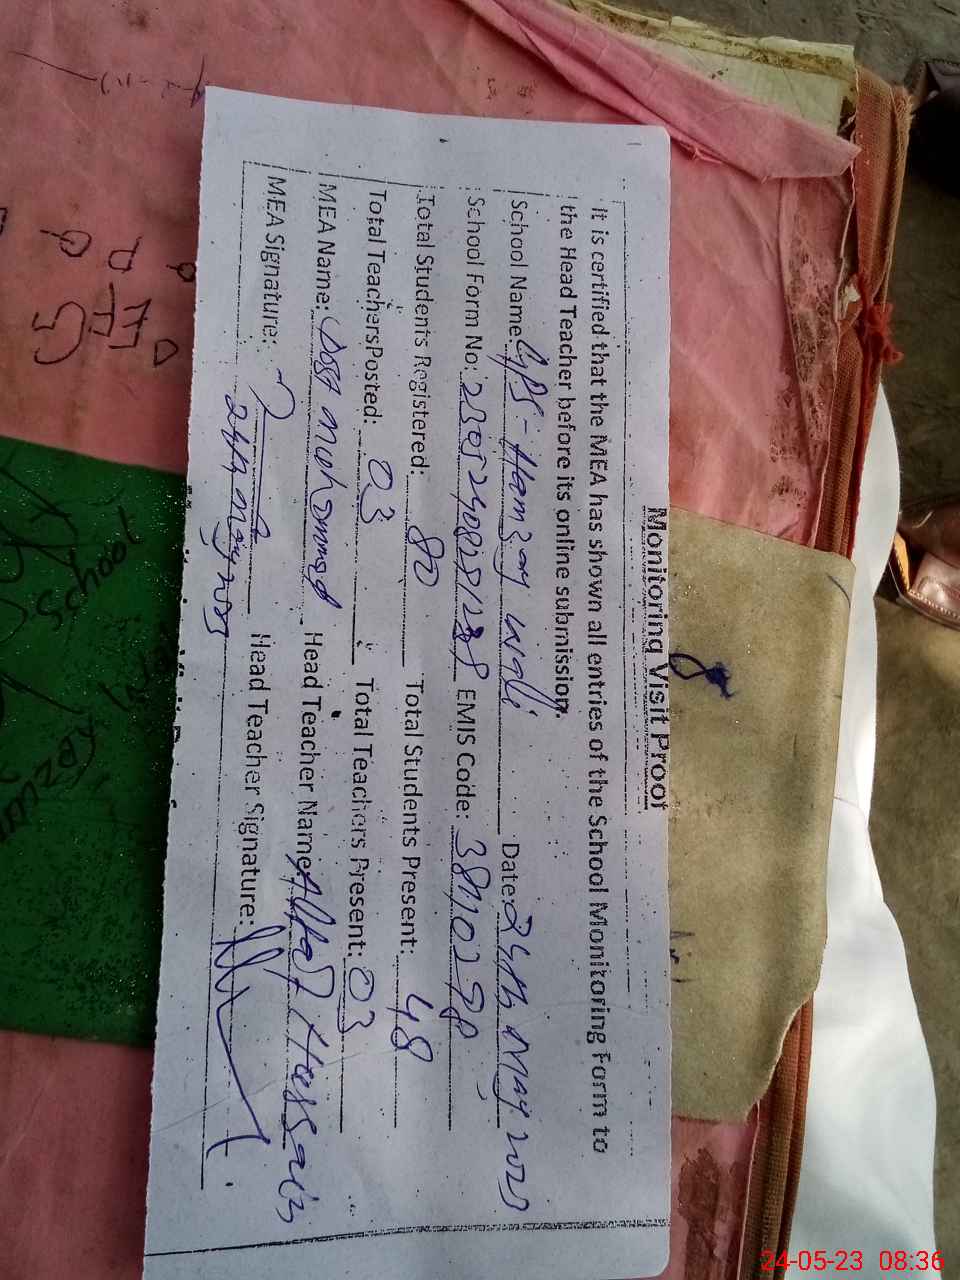 Monitoring Visit Proof
It is certified that the MEA has shown all entries of the School Monitoring Form to
the Head Teacher before its online submission.
School Name: GPS- Hamzay wali Date: 24th May 2023
School Form No: EMIS Code:
Total Students Registered: 80 Total Students Present: 48
Total Teachers Posted: 03 Total Teachers Present: 03
MEA Name: Dost Muhammad Head Teacher Name: Altaf Hussain
MEA Signature: Head Teacher Signature:
24th May 2023
School
24-05-23 08:36